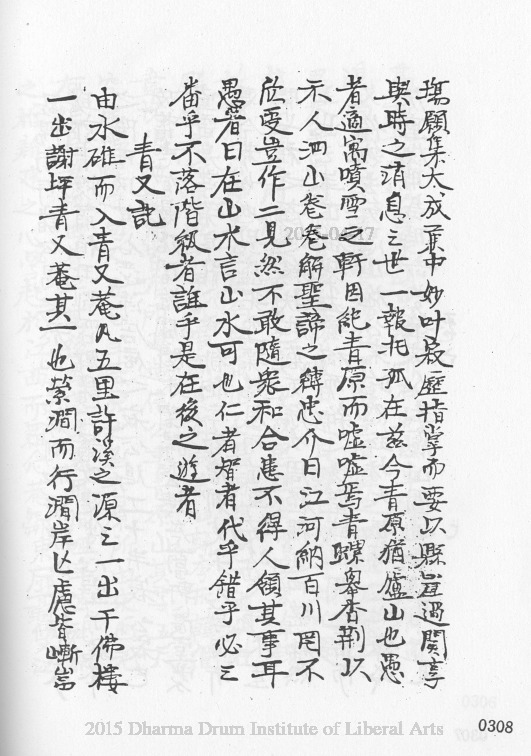 瑪頋集大成薬中妙叶發歷指掌而要以縣豈過関享
與時之消息三世一報托孤在茲今青原猶廬山也愚
者適寓噴雪之軒因純青原而噓噓焉青螺皋杏荆以
示人泗山卷卷解聖諦之轉忠介曰江河納百川罔不
欣受豈作二見然不敢隨衆和合患不得人領其事耳
愚者曰在山水言山水可也仁者智者代乎錯乎必三
番乎不落階級者誰乎是在後之遊者
青又記
由水碓而入青又菴凡五里許溪之源三一出千佛樓
一出謝坪青又菴其一也縈澗而行澗岸匕應皆嶄岩
2015 Dharma Drum Institute of Liberal Arts
0308